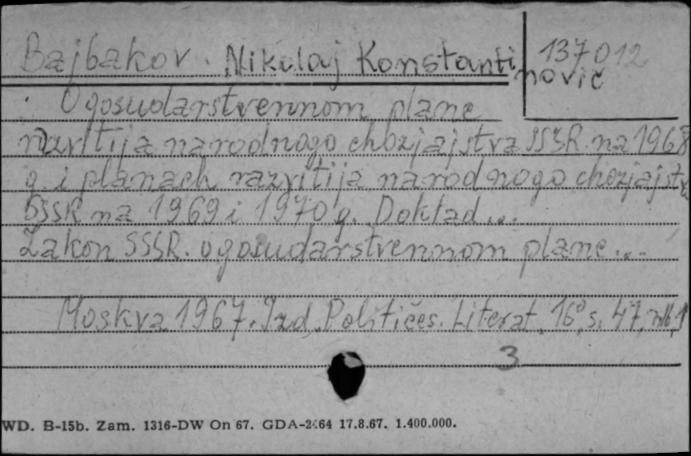 Bajbakov. Nikolaj Konstantinovič
137012
O gosudarstvennom plane
razvitija narodnogo chozjajstva SSSR na 1968
g. i planach razvitija narodnogo chozjajstva
SSSR na 1969 i 1970 g. Doklad...
Zakon SSSR. o gosudarstvennom plane...
Moskva 1967. Izd. Političes. Literat. 16°, s. 47, nlb. 1
3
WD. B-15b. Zam. 1316-DW On 67. GDA-2464 17.8.67. 1.400.000.